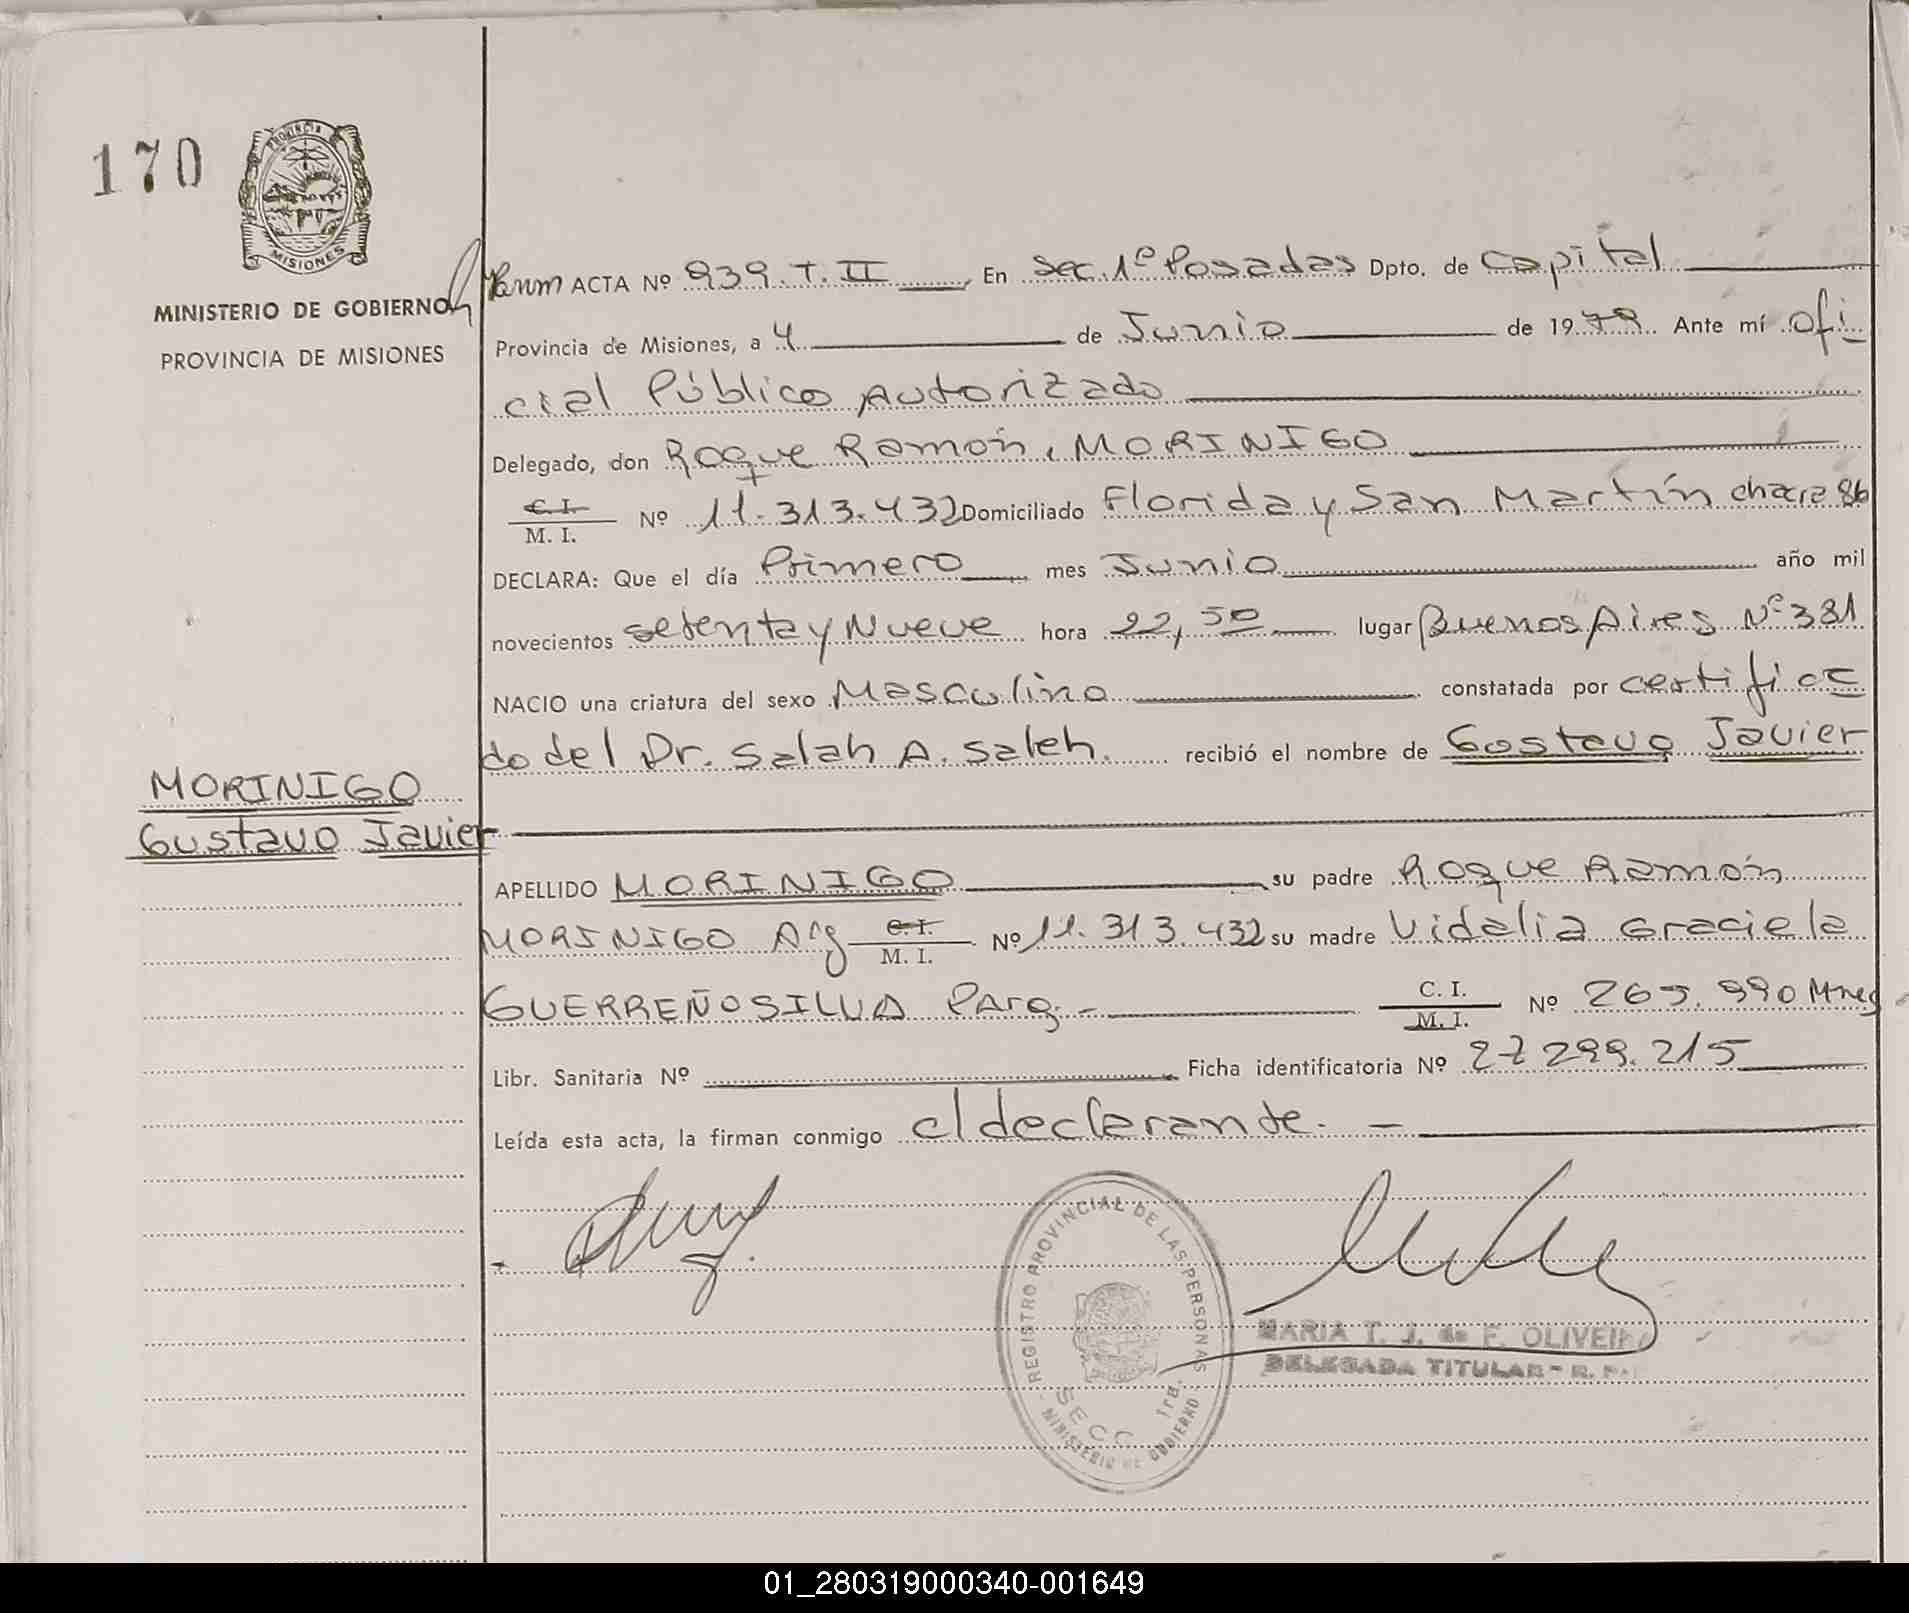 170
PROVINCIA
MISIONES
MINISTERIO DE GOBIERNO
PROVINCIA DE MISIONES
ACTA Nº 939. T. II En Sec. 1º Posadas Dpto. de Capital
Provincia de Misiones, a 4 de Junio de 1979 Ante mí Ofi
cial Público Autorizado
Delegado, don Roque Ramón, MORINIGO
C. I.
M. I. Nº 11.313.432 Domiciliado Florida y San Martín chacra 86
DECLARA: Que el día Primero mes Junio año mil
novecientos setenta y Nueve hora 22,50 lugar Buenos Aires Nº 381
NACIO una criatura del sexo Masculino constatada por certifica
do del Dr. Salah A. Saleh. recibió el nombre de Gustavo Javier
MORINIGO
Gustavo Javier
APELLIDO MORINIGO su padre Roque Ramón
MORINIGO Arg C. I. M. I. Nº 11.313.432 su madre Vidalia Graciela
GUERREÑO SILVA Parg.- C. I. M. I. Nº 265.990 Mnes
Libr. Sanitaria Nº Ficha identificatoria Nº 27 299.215
Leída esta acta, la firman conmigo el declarante. -
REGISTRO PROVINCIAL DE LAS PERSONAS
SECC. 1ra.
MINISTERIO DE GOBIERNO
MARIA T. J. de F. OLIVEIRA
DELEGADA TITULAR - R. P.
01_280319000340-001649